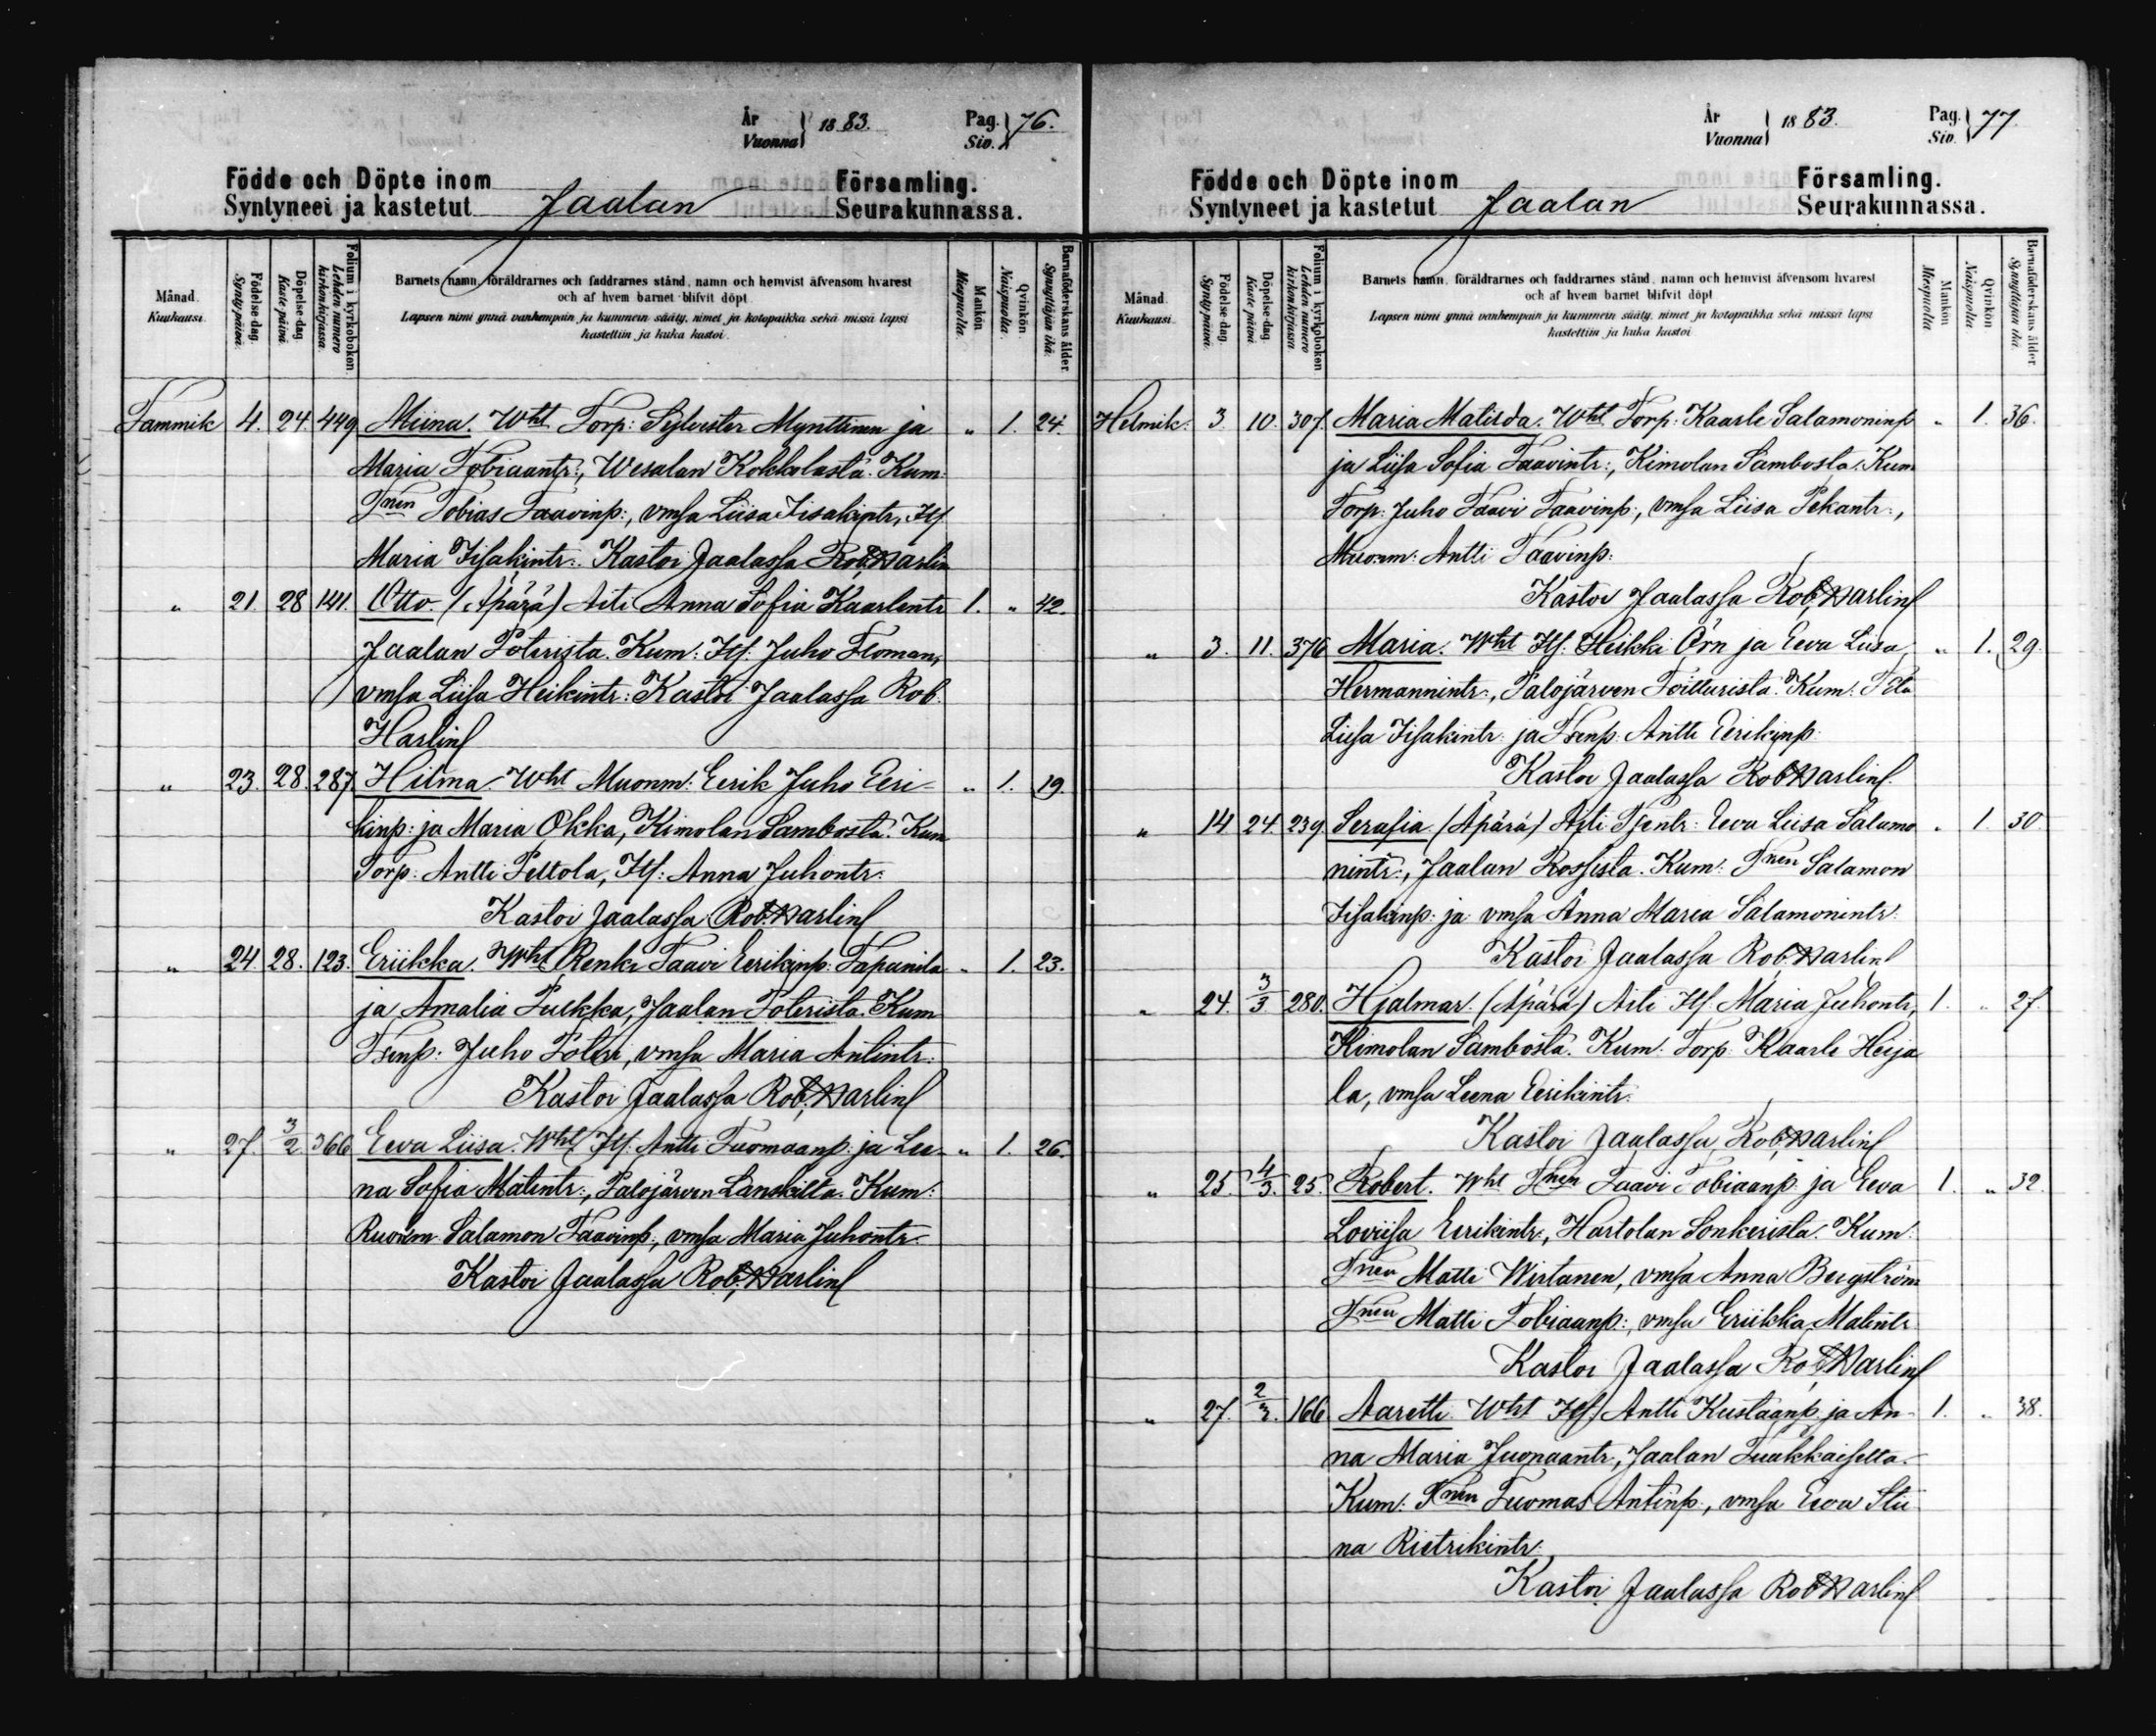 År Vuonna 1883. Pag. Siv. 76.
Födde och Döpte inom Församling.
Syntyneet ja kastetut Jaalan Seurakunnassa.
Månad. Kuukausi. Födelse-dag. Synty-päivä. Döpelse-dag Kaste-päivä. Folium i kyrkoboken. Lehden numero kirkonkirjassa. Barnets namn, föräldrarnes och faddrarnes stånd, namn och hemvist äfvensom hvarest
och af hvem barnet blifvit döpt.
Lapsen nimi ynnä vanhempain ja kummein sääty, nimet ja kotopaikka sekä missä lapsi
kastettiin ja kuka kastoi.
Mankön Miespuolta. Qvinkön. Naispuolta. Barnaföderskans ålder. Synnyttäjän ikä.
Tammik 4. 24. 449 Miina. Wht Torp: Sylvester Mynttinen ja " 1. 24.
Maria Tobiaantr:, Wesalan Kokkolasta. Kum:
Tnen Tobias Taavinp:, vmsa Liisa Iisakintr, Itf.
Maria Iisakintr: Kastoi Jaalassa Rob. Harlin
" 21. 28 141. Otto. (Äpärä) Äiti Anna Sofia Kaarlentr 1. " 42.
Jaalan Poterista. Kum: Itf. Juho Floman,
vmsa Liisa Heikintr: Kastoi Jaalassa Rob.
Harlin
" 23. 28. 287. Hilma. Wht Muonm: Eerik Juho Eeri- " 1. 19.
kinp: ja Maria Okka, Kimolan Sambosta. Kum
Torp: Antti Peltola, Itf: Anna Juhontr:
Kastoi Jaalassa Rob. Harlin
" 24. 28. 123. Eriikka. Wht Renki Taavi Eerikinp: Tapanila " 1. 23.
ja Amalia Pulkka, Jaalan Poterista. Kum
Tsenp: Juho Poteri, vmsa Maria Antintr:
Kastoi Jaalassa Rob. Harlin
" 27. 3/2. 366 Eeva Liisa. Wht Itf. Antti Tuomaanp: ja Lee- " 1. 26.
na Sofia Matintr:, Palojärven Lanskilta. Kum:
Ruodum. Salamon Taavinp:, vmsa Maria Juhontr:
Kastoi Jaalassa Rob. Harlin
År Vuonna 1883. Pag. Siv. 77.
Födde och Döpte inom Församling.
Syntyneet ja kastetut Jaalan Seurakunnassa.
Månad. Kuukausi. Födelse-dag. Synty-päivä. Döpelse-dag Kaste-päivä. Folium i kyrkoboken Lehden numero kirkonkirjassa. Barnets namn, föräldrarnes och faddrarnes stånd, namn och hemvist äfvensom hvarest
och af hvem barnet blifvit döpt
Lapsen nimi ynnä vanhempain ja kummein sääty, nimet ja kotopaikka sekä missä lapsi
kastettiin ja kuka kastoi
Mankön Miespuolta Qvinkön Naispuolta. Barnaföderskans ålder. Synnyttäjän ikä.
Helmik: 3. 10. 307. Maria Matilda. Wht Torp: Kaarle Salamoninp " 1. 36.
ja Liisa Sofia Taavintr:, Kimolan Sambosta. Kum
Torp: Juho Taavi Taavinp:, vmsa Liisa Pekantr:,
Muonm: Antti Taavinp:
Kastoi Jaalassa Rob. Harlin
" 3. 11. 376 Maria. Wht Itf. Heikki Örn ja Eeva Liisa " 1. 29.
Hermannintr:, Palojärven Toitturista. Kum:
Liisa Iisakintr: ja Tsenp: Antti Eerikinp:
Kastoi Jaalassa Rob. Harlin.
" 14 24. 239. Serafia. (Äpärä) Äiti Tsentr: Eeva Liisa Salamo " 1. 30.
nintr:, Jaalan Rossista. Kum: Tnen Salamon
Iisakinp: ja vmsa Anna Maria Salamonintr:
Kastoi Jaalassa Rob. Harlin
" 24. 3/3. 280. Hjalmar. (Äpärä) Äiti Itf. Maria Juhontr, 1. " 27.
Kimolan Sambosta. Kum: Torp: Kaarle Heija
la, vmsa Leena Eerikintr:
Kastoi Jaalassa Rob. Harlin
" 25. 4/3. 25. Robert. Wht Tnen Taavi Tobiaanp: ja Eeva 1. " 32.
Loviisa Eerikintr:, Hartolan Sonkerista. Kum:
Tnen Matti Wirtanen, vmsa Anna Bergström
Tnen Matti Tobiaanp:, vmsa Eriikka Matintr:
Kastoi Jaalassa Rob. Harlin
" 27. 2/3. 166 Aaretti. Wht Itf. Antti Kustaanp: ja An- 1. " 38.
na Maria Juonaantr:, Jaalan Tuukkaiselta.
Kum: Tnen Tuomas Antinp:, vmsa Eeva Stii
na Rietrikintr:
Kastoi Jaalassa Rob. Harlin